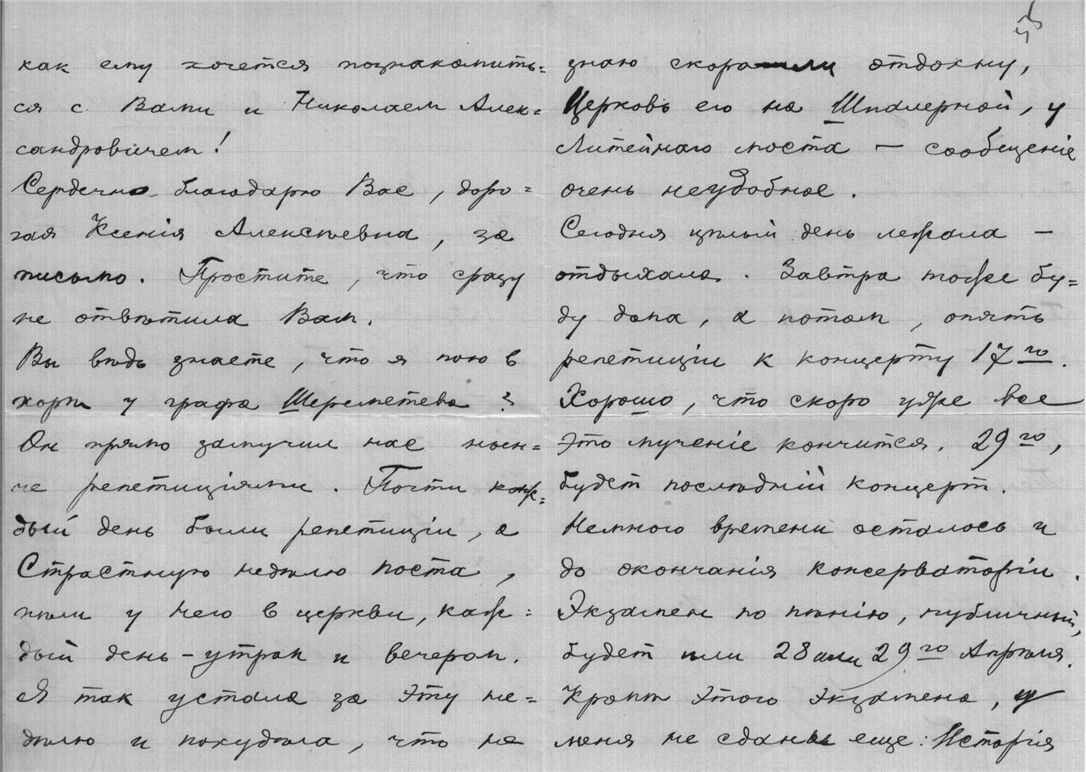 как ему хочется познакомить=
ся с Вами и Николаем Алек=
сандровичем!
Сердечно благодарю Вас, доро=
гая Ксенія Алексѣевна, за
письмо. Простите, что сразу
не отвѣтила Вам.
Вы вѣдь знаете, что я пою в
хорѣ у графа Шереметева?
Он прямо замучил нас нын=
че репетиціями. Почти каж=
дый день были репетиціи, а
Страстную недѣлю поста,
пѣли у него в церкви, каж=
дый день - утром и вечером.
Я так устала за эту не=
дѣлю и похудѣла, что не
знаю скоро ли отдохну,
Церковь его на Шпалерной, у
Литейнаго моста — сообщеніе
очень неудобное.
Сегодня цѣлый день лежала —
отдыхала. Завтра тоже бу=
ду дома, а потом, опять
репетиціи к концерту 17го.
Хорошо, что скоро уже все
это мученіе кончится. 29го,
будет послѣдній концерт.
Немного времени осталось и
до окончанія консерваторіи.
Экзамен по пѣнію, публичный,
будет или 28 или 29го Апрѣля.
Кромѣ этого экзамена, у
меня не сданы еще: Исторія